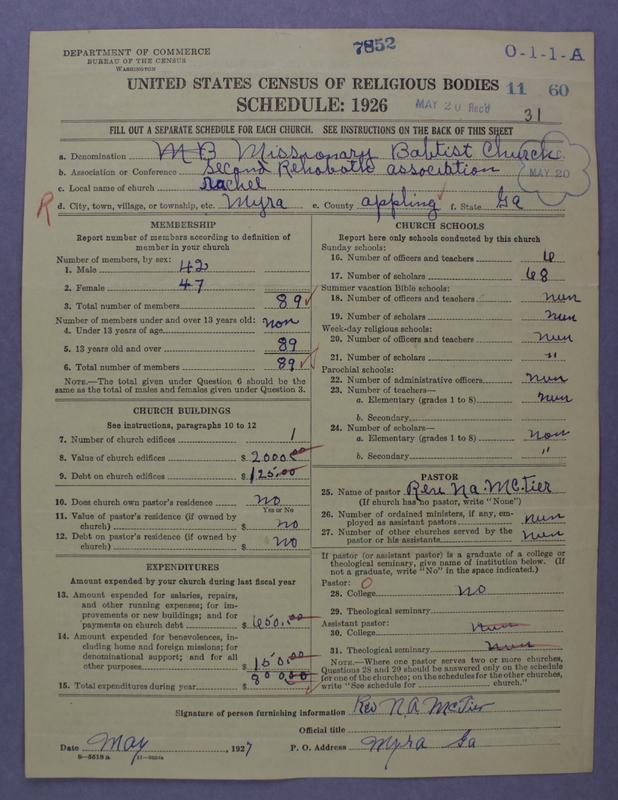 DEPARTMENT OF COMMERCE
BUREAU OF THE CENSUS
WASHINGTON
7852
O-1-1-A
UNITED STATES CENSUS OF RELIGIOUS BODIES
11 60
SCHEDULE: 1926
MAY 20 Rec'd
31
FILL OUT A SEPARATE SCHEDULE FOR EACH CHURCH. SEE INSTRUCTIONS ON THE BACK OF THIS SHEET
a. Denomination MB Missionary Baptist Church
b. Association or Conference Second Rehoboth association
MAY 20
c. Local name of church rachel
R
d. City, town, village, or township, etc. Myra e. County appling f. State Ga
MEMBERSHIP
Report number of members according to definition of
member in your church
Number of members, by sex:
1. Male 42
2. Female 47
3. Total number of members 89
Number of members under and over 13 years old:
4. Under 13 years of age non
5. 13 years old and over 89
6. Total number of members 89
NOTE.—The total given under Question 6 should be
same as the total of males and females given under Question 3.
CHURCH BUILDINGS
See instructions, paragraphs 10 to 12
7. Number of church edifices 1
8. Value of church edifices $ 2000.00
9. Debt on church edifices $ 125.00
10. Does church own pastor's residence no
Yes or No
11. Value of pastor's residence (if owned by
church) $ no
12. Debt on pastor's residence (if owned by
church) $ no
EXPENDITURES
Amount expended by your church during last fiscal year
13. Amount expended for salaries, repairs,
and other running expenses; for im-
provements or new buildings; and for
payments on church debt $ 650.00
14. Amount expended for benevolences, in-
cluding home and foreign missions; for
denominational support; and for all
other purposes $ 150.00
15. Total expenditures during year $ 800.00
CHURCH SCHOOLS
Report here only schools conducted by this church
Sunday schools:
16. Number of officers and teachers 6
17. Number of scholars 68
Summer vacation Bible schools:
18. Number of officers and teachers nun
19. Number of scholars nun
Week-day religious schools:
20. Number of officers and teachers nun
21. Number of scholars "
Parochial schools:
22. Number of administrative officers nun
23. Number of teachers—
a. Elementary (grades 1 to 8) nun
b. Secondary
24. Number of scholars—
a. Elementary (grades 1 to 8) non
b. Secondary "
PASTOR
25. Name of pastor Rev Na McTier
(If church has no pastor, write "None")
26. Number of ordained ministers, if any, em-
ployed as assistant pastors nun
27. Number of other churches served by the
pastor or his assistants nun
If pastor (or assistant pastor) is a graduate of a college or
theological seminary, give name of institution below. (If
not a graduate, write "No" in the space indicated.)
Pastor: O
28. College no
29. Theological seminary
Assistant pastor:
30. College nun
31. Theological seminary nun
NOTE.—Where one pastor serves two or more churches,
Questions 28 and 29 should be answered only on the schedule
for one of the churches; on the schedules for the other churches,
write "See schedule for church."
Signature of person furnishing information Rev N A McTier
Official title
Date May , 1927 P. O. Address Myra Ga
8—5518 a